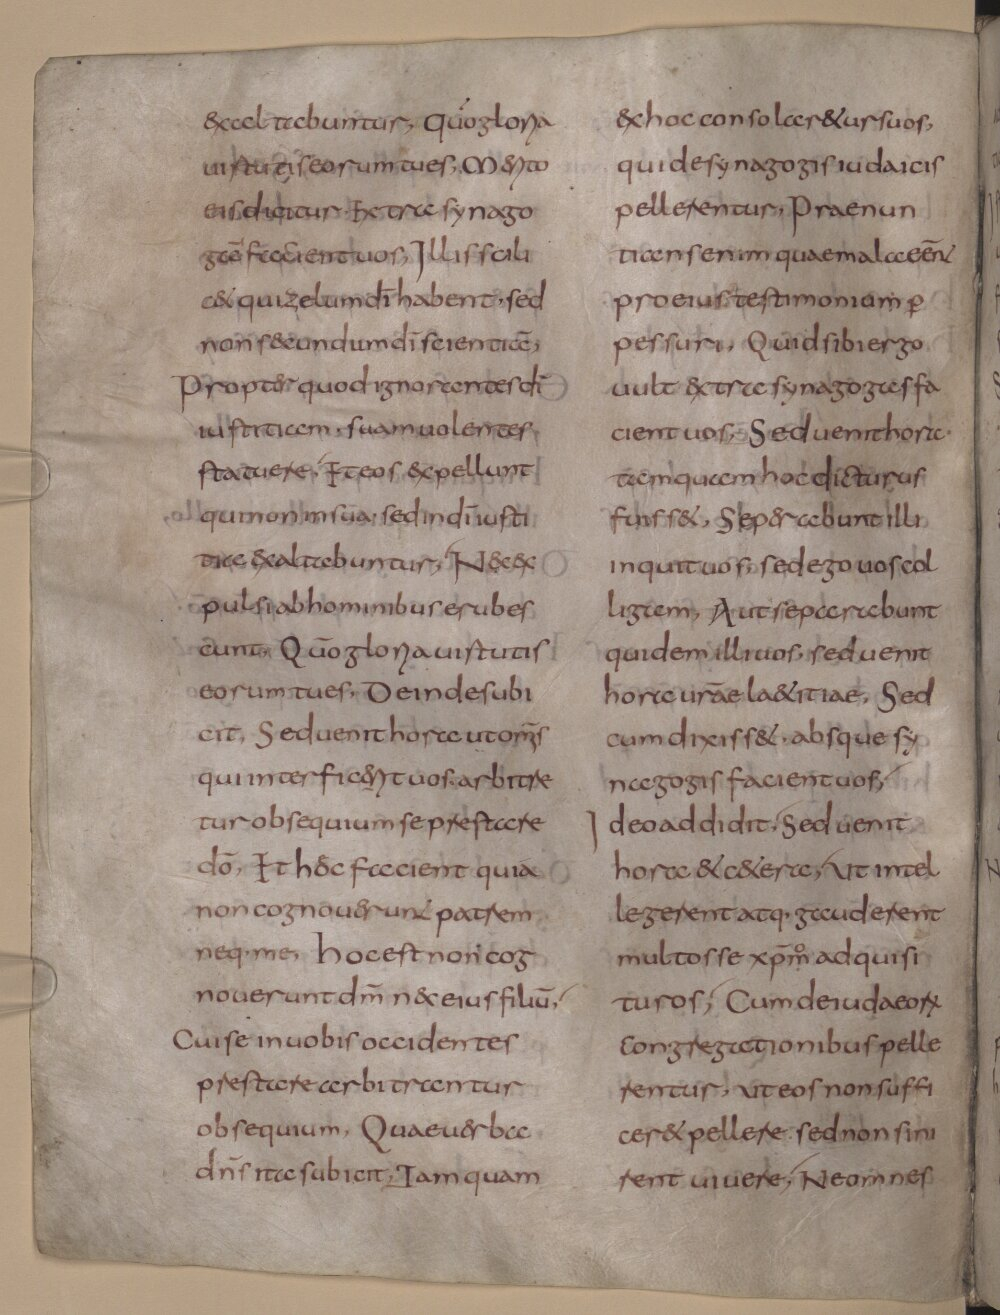 &xaltabuntur, Qūo gloria
uirtutis eorum tu es, M&rito
eis dicitur. Extra synago
gas facient uos, Illis scili
c& qui zelum dī habent, sed
non s&cundum dī scientiā,
Propt&r quod ignorantes dī
iustitiam, suam uolentes
statuere, Et eos expellunt
qui non in sua, sed in dī iusti
tia exaltabuntur, N&c ex
pulsi ab hominibus erubes
cunt, Qūo gloria uirtutis
eorum tu es, Deinde subi
cit, Sed uenit hora ut om̄s
qui interfic&nt uos. arbitre
tur obsequium se prestare
dō, Et h&c facient quia
non cognou&runt patrem
neq. me, hoc est non cog
nouerunt dm̄ n&c eius filiū,
Cui se in uobis occidentes
prestare arbitrantur
obsequium, Quae u&rba
dn̄s ita subicit, Tamquam
& hoc consolar&ur suos,
qui de synagogis iudaicis
pellerentur, Praenun
tians enim quae mala eēnt
pro eius testimonium ꝑ
pessuri, Quid sibi ergo
uult extra synagogas fa
cient uos, Sed uenit hora.
tamquam hoc dicturus
fuiss&, Separabunt illi
inquit uos, sed ego uos col
ligam, Aut separabunt
quidem illi uos, sed uenit
hora ur̄ae la&itiae, Sed
cum dixiss&. absque sy
nagogis facient uos,
Ideo addidit, Sed uenit
hora & c&era, Ut intel
legerent atq. gauderent
multos se xp̄m̊ adquisi
turos, Cum de iudaeorꝝ
congregationibus pelle
rentur, ut eos non suffi
cer& pellere. sed non sini
rent uiuere, Ne omnes